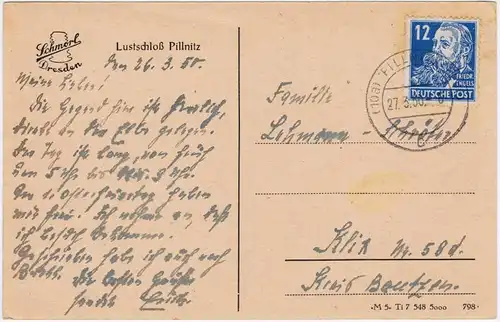 Schmorl
Dresden
Lustschloß Pillnitz
den 26.3.50.
Meine Lieben!
Die Gegend hier ist herrlich,
direkt an der Elbe gelegen.
Der Tag ist lang, von früh
um 5 Uhr bis 9 Uhr.
Am 1. Osterfeiertag haben
wir frei. Ich nehme an, daß
ich Besuch bekomme.
Geschrieben habe ich auch nach
Die besten Grüße
sendet
12
FRIEDR.
ENGELS
DEUTSCHE POST
(10a) PILL
27.3.50.
Familie
Lehmann-
Klix Nr. 58d.
Kreis Bautzen.
-M 5- Ti 7 548 5000 798-